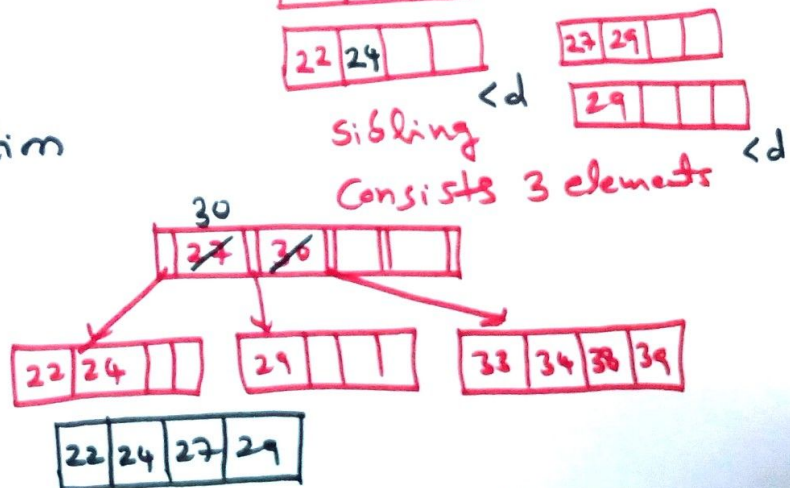 22 24
27 29
<d
29
im
sibling
<d
Consists 3 elements
30
27 30
22 24
29
33 34 38 39
22 24 27 29